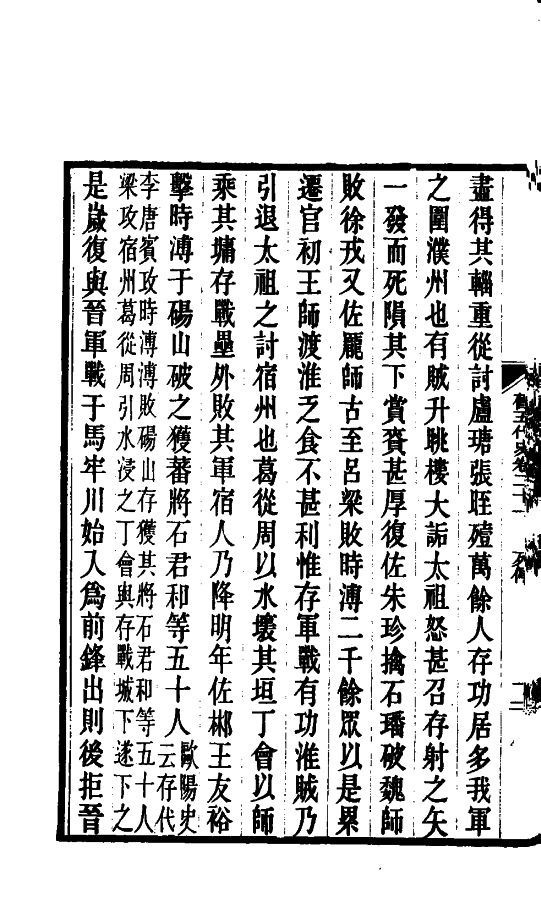 盡得其輜重從討盧瑭張晊殪萬餘人存功居多我軍
之圍濮州也有賊升眺樓大詬太祖怒甚召存射之矢
一發而死隕其下賞賚甚厚復佐朱珍擒石璠破魏師
敗徐戎又佐龐師古至呂梁敗時溥二千餘眾以是累
遷官初王師渡淮乏食不甚利惟存軍戰有功淮賊乃
引退太祖之討宿州也葛從周以水壞其垣丁會以師
乘其墉存戰壘外敗其軍宿人乃降明年佐郴王友裕
擊時溥于碭山破之獲蕃將石君和等五十人歐陽史云存代
李唐賓攻時溥溥敗碭山存獲其將石君和等五十人
梁攻宿州葛從周引水浸之丁會與存戰城下遂下之
是歲復與晉軍戰于馬牢川始入爲前鋒出則後拒晉
舊五代史卷二十一